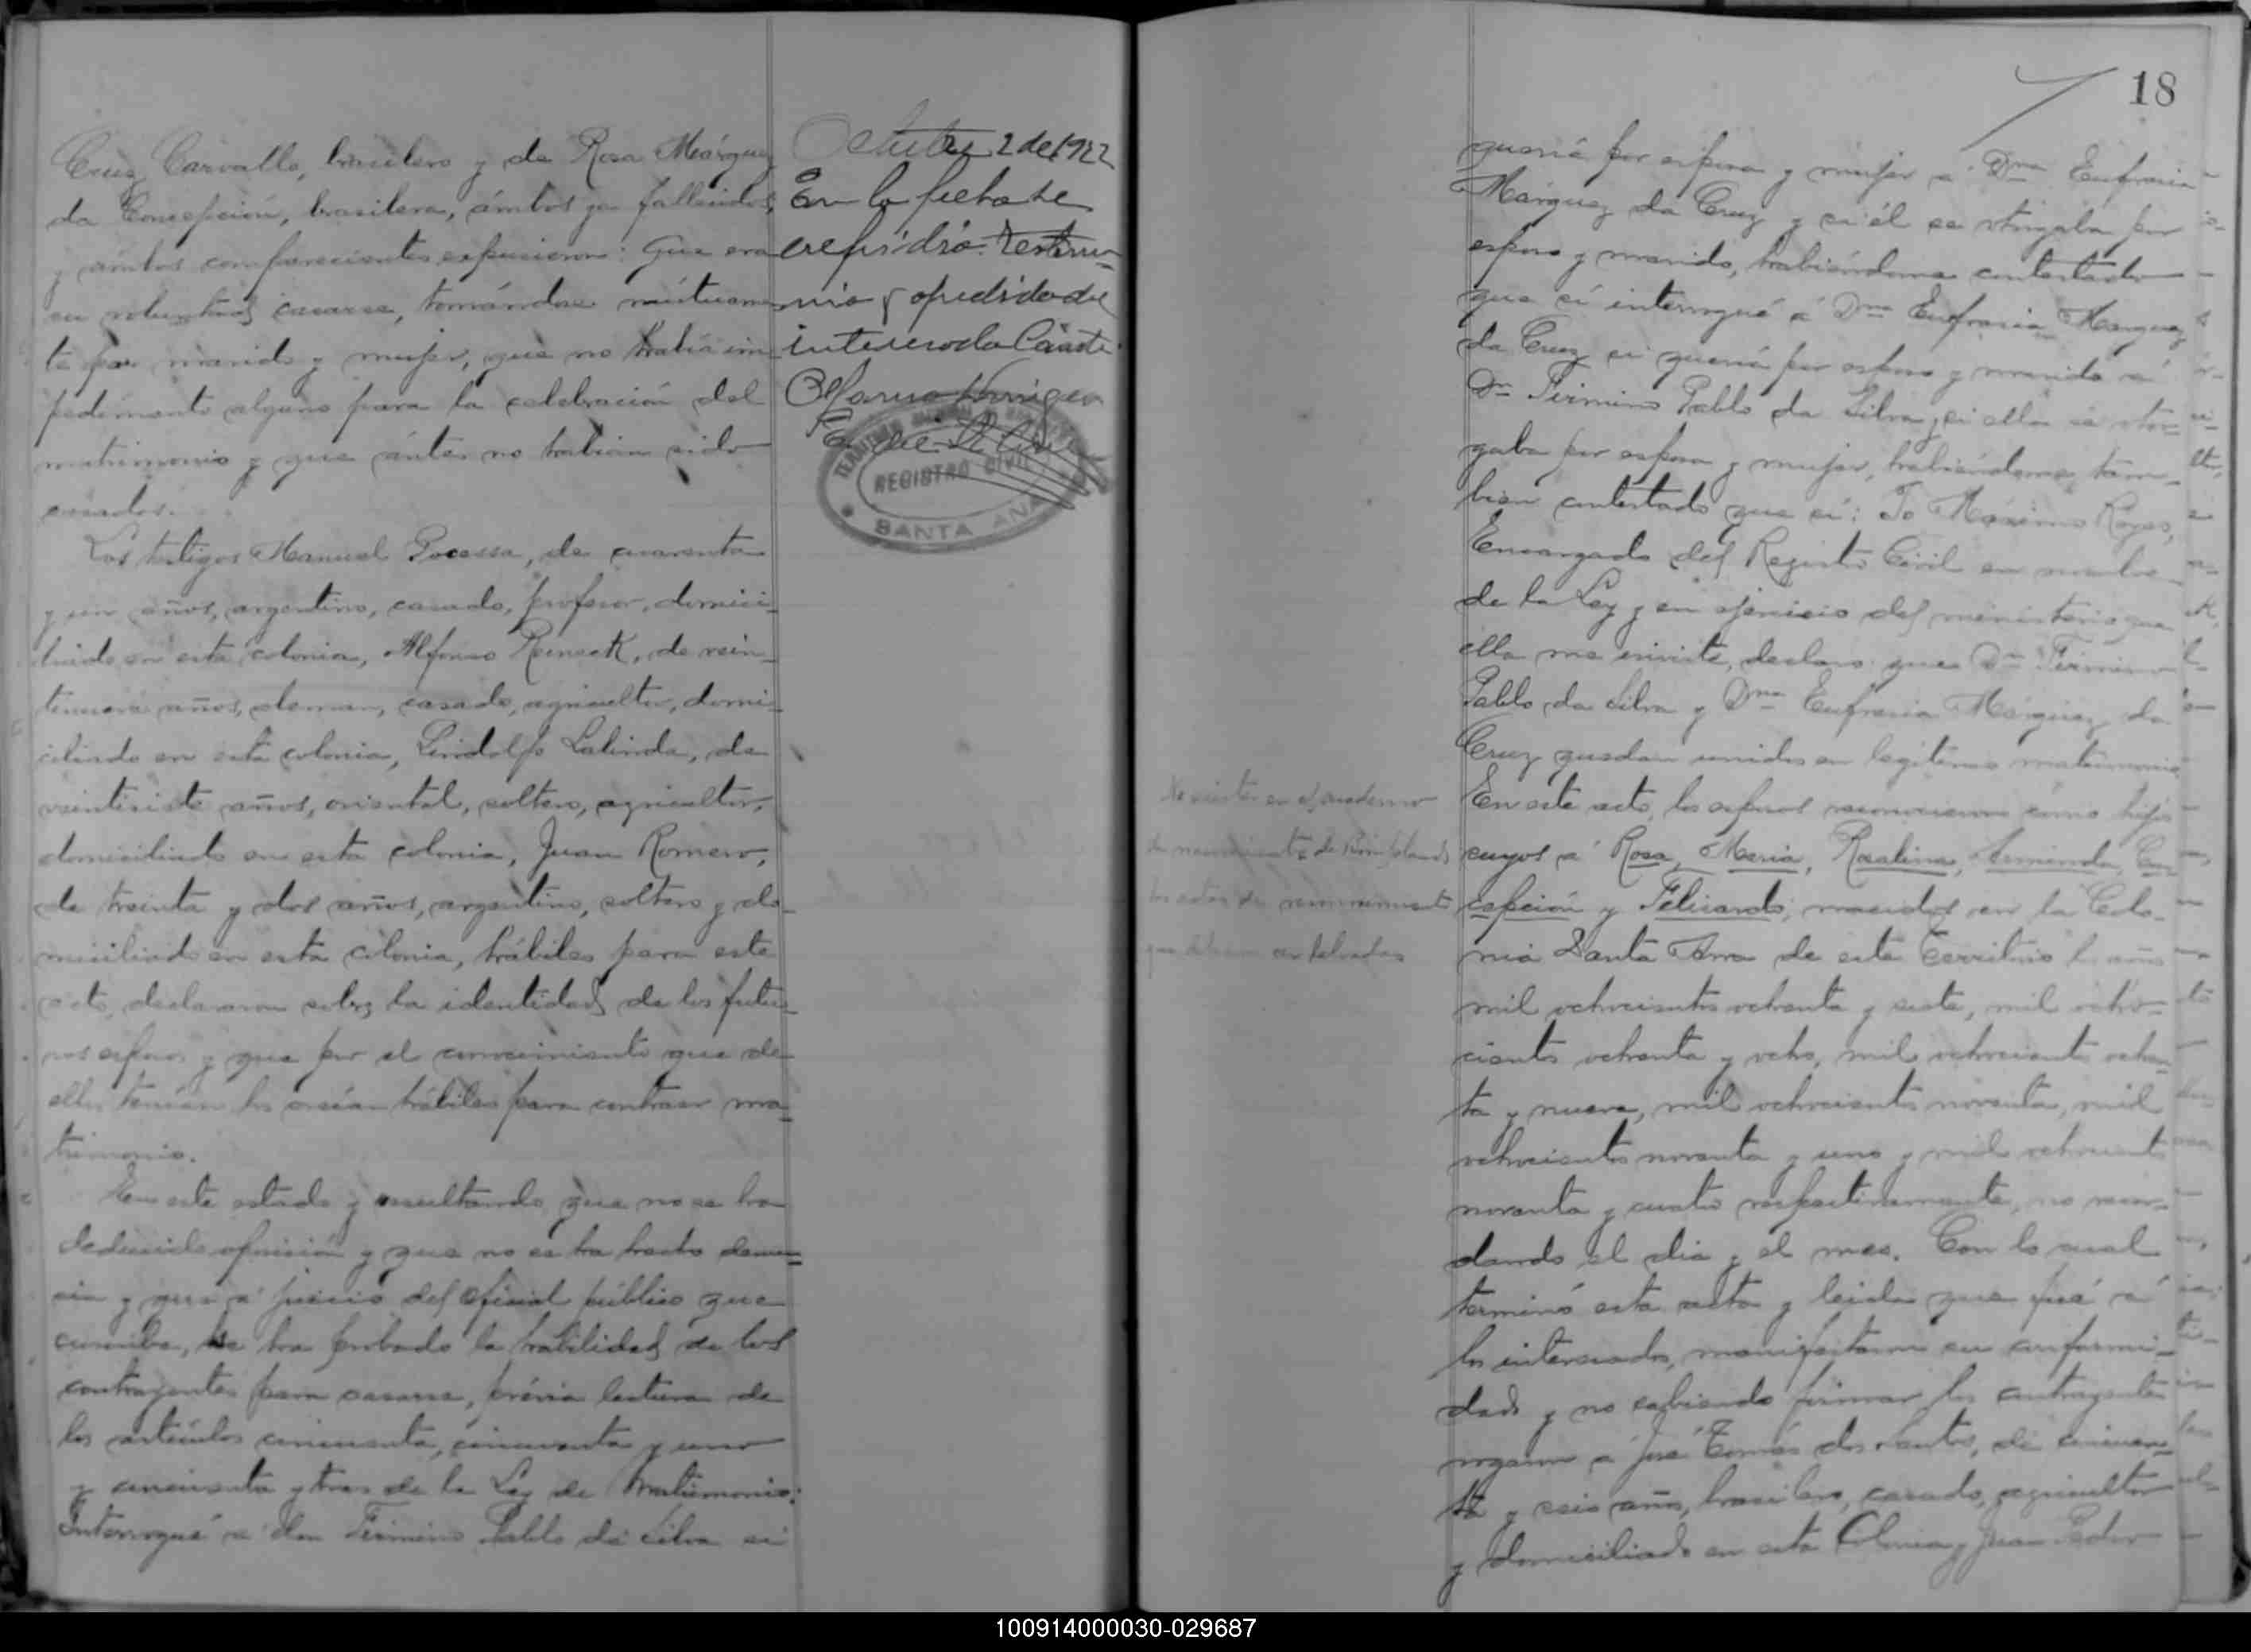 Cruz Carvallo, brasilero y de Rosa Márquez
da Concepción, brasilera, ámbos ya fallecidos,
y ámbos comparecientes expusieron: Que era
su voluntad casarse, tomándose mútuamen
te por marido y mujer, que no había im
pedimento alguno para la celebración del
matrimonio y que ántes no habían sido
casados.
Los testigos Manuel, de cuarenta
y un años, argentino, casado, profesor, domici-
liado en esta colonia, Alfonso Reineck, de vein-
tinueve años, aleman, casado, agricultor, domi-
ciliado en esta colonia, Lindolfo Lalinda, de
veintisiete años, oriental, soltero, agricultor,
domiciliado en esta colonia, Juan Romero,
de treinta y dos años, argentino, soltero y do-
miciliado en esta colonia, hábiles para este
acto, declararon sobre la identidad de los futu-
ros esposos y que por el conocimiento que de
ellos tenían los creían hábiles para contraer ma-
trimonio.
En este estado y resultando que no se ha
deducido oposición y que no se ha hecho denun-
cia y que á juicio del oficial público que
suscribe, se ha probado la habilidad de los
contrayentes para casarse, prévia lectura de
los artículos cincuenta, cincuenta y uno
y cincuenta y tres de la Ley de Matrimonio:
Interrogué a don Firmino Pablo da Silva si
Octubre 2 de 1922
En la fecha se
expidió testimo-
nio a pedido del
interesado
REGISTRO CIVIL
SANTA ANA
18
quería por esposa y mujer a Dna Eufrasia
Márquez da Cruz y si él se otorgaba por
esposo y marido, habiéndome contestado
que sí interrogué á Dna Eufrasia Marquez
da Cruz si quería por esposo y marido a
Dn Firmino Pablo da Silva y si ella se otor-
gaba por esposa y mujer, habiéndome tam-
bien contestado que sí: Yo Máximo Rojas,
Encargado del Registro Civil en nombre
de la Ley y en ejercicio del ministerio que
ella me inviste, declaro que Dn Firmino
Pablo da Silva y Dna Eufrasia Márquez da
Cruz quedan unidos en legítimo matrimonio
En este acto, los esposos reconocieron como hijos
suyos a Rosa, Maria, Rosalina, Arminda, Con-
cepción y Felisardo, nacidos en la Colo-
nia Santa Ana de este Territorio los años
mil ochocientos ochenta y siete, mil ocho-
cientos ochenta y ocho, mil ochocientos ochen-
ta y nueve, mil ochocientos noventa, mil
ochocientos noventa y uno y mil ochocientos
noventa y cuatro respectivamente, no recor-
dando el dia y el mes. Con lo cual
terminó esta acta y leida que fué á
los interesados, manifestaron su conformi-
dad y no sabiendo firmar los contrayentes
rogaron a José Tomás dos Santos, de cincuen-
ta y seis años, brasilero, casado, agricultor
y domiciliado en esta Colonia y Juan Pedro
100914000030-029687